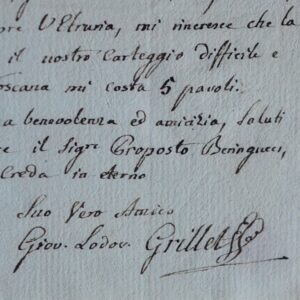 pre l'Etruria, mi rincresce che la
il nostro Carteggio difficile e
Toscana mi costa 5 pavoli.
a benevolenza ed amicizia, Saluti
re il Sigre Proposto Beringucci,
Creda in eterno
Suo Vero Amico
Giov. Lodov. Grillet